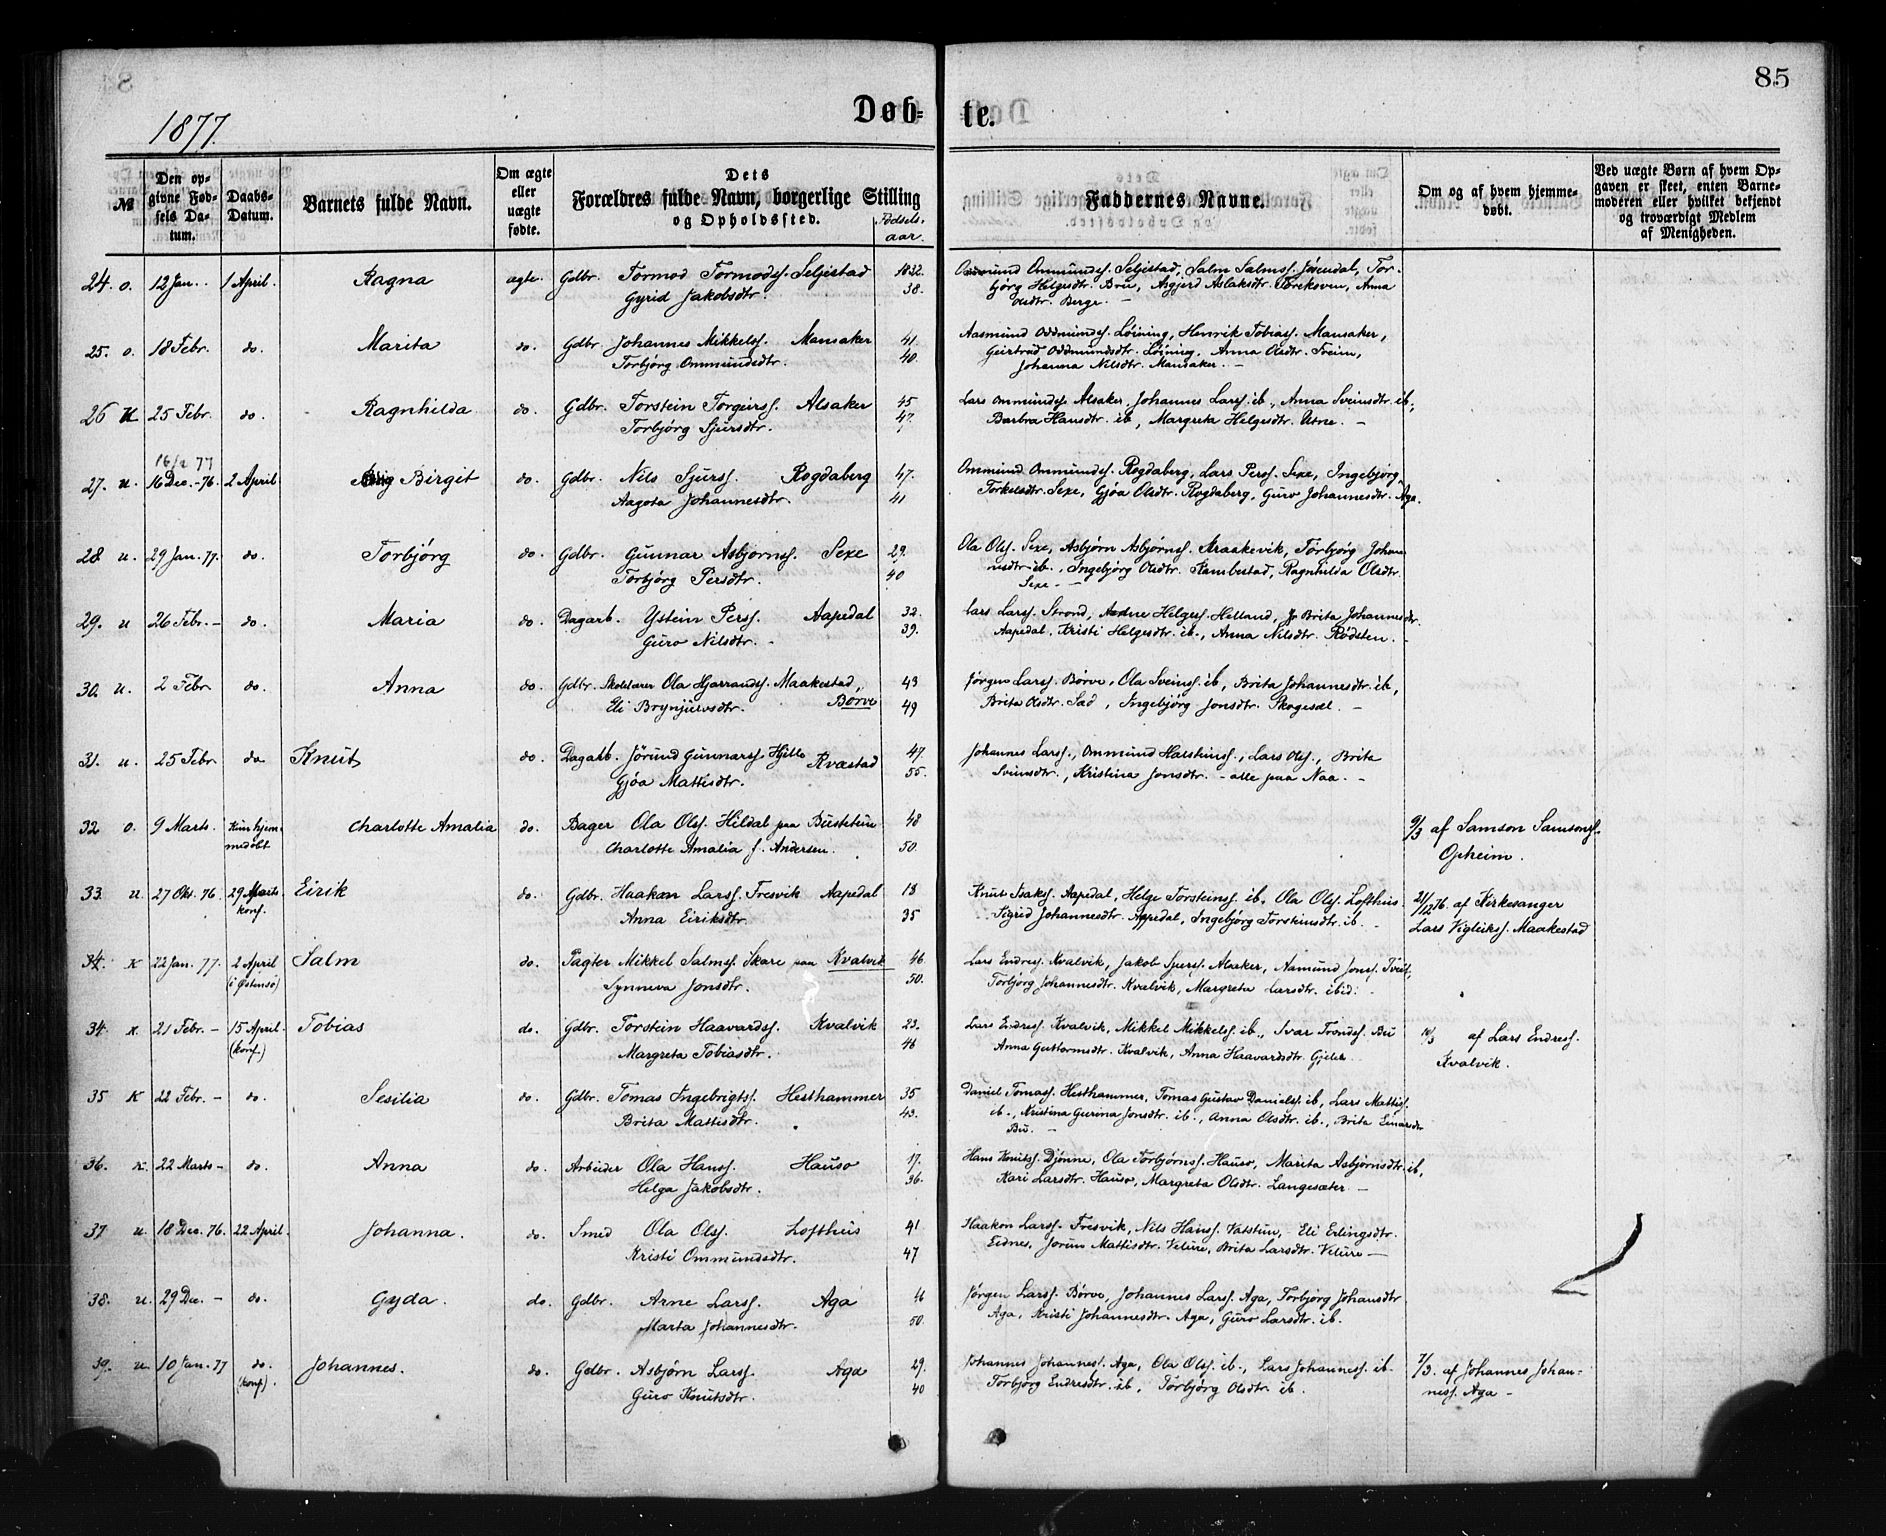 85
1877.
Døb-te.
№
Den opgivne Fødsels Datum.
Daabs-Datum.
Barnets fulde Navn.
Om ægte eller uægte fødte.
Dets Forældres fulde Navn, borgerlige Stilling og Opholdssted.
Fødselsaar.
Faddernes Navne.
Om og af hvem hjemmedøbt.
Ved uægte Børn af hvem Opgaven er skeet, enten Barnemoderen eller hvilket bekjendt og troværdigt Medlem af Menigheden.
24. o. 12 Jan. 1 April. Ragna ægte. Gdbr. Tormod Tormods. Seljestad 1832.
Gyrid Jakobsdtr. 38.
Ommund Ommunds. Seljestad, Salm Salms. Jösendal, Tor-
björg Helgesdtr. Bru, Asgjerd Aslaksdtr. , Anna
Olsdtr. Berge. –
25. o. 18 Febr. do. Marita do. Gdbr. Johannes Mikkels. Mansaker 41.
Torbjörg Ommundsdtr. 40.
Aasmund Oddmunds. Löining, Henrik Tobias. Mansaker,
Geirtrud Oddmundsdtr. Löining, Anna Olsdtr. Freim,
Johanna Nilsdtr. Mansaker. –
26 K 25 Febr. do. Ragnhilda do. Gdbr. Torstein Torgeirs. Alsaker 45
Torbjörg Sjursdtr. 47.
Lars Ommunds. Alsaker, Johannes Lars. ib., Anna Sveinsdtr. ib.,
Barbra Hansdtr. ib, Margreta Helgesdtr. Utne. –
16/2 77
27. u. 16 Dec. -76. 2 April Birgit do. Gdbr. Nils Sjurs. Rogdaberg 47.
Aagota Johannesdtr. 41
Ommund Ommunds. Rogdaberg, Lars Pers. Sexe, Ingebjörg
Torkelsdtr. Sexe, Gjöa Olsdtr. Rogdaberg, Guro Johannesdtr. Aga.
28 u. 29 Jan. 77. do. Torbjörg do. Gdbr. Gunnar Asbjörns. Sexe 29.
Torbjörg Persdtr. 40
Ola Ols. Sexe, Asbjörn Asbjörns. Kraakevik, Torbjörg Johan-
nesdtr. ib., Ingebjörg Olsdtr. Kambestad, Ragnhilda Olsdtr.
Sexe –
29. u 26 Febr. – do. Maria do. Dagarb. Ystein Pers. Aapedal 32.
Guro Nilsdtr. – 39.
Lars Lars. Strond, Helges. Helland, Brita Johannesdtr.
Aapedal, Kristi Helgesdtr. ib., Anna Nilsdtr. Rödsten. –
30. u. 2 Febr do. Anna do. Gdbr. Skolelærer Ola Hjarrands. Maakestad, 43
Eli Brynjulvsdtr. Börve 49
Jörgen Lars. Börve, Ola Sveins. ib, Brita Johannesdtr. ib,
Brita Olsdtr. Sad, Ingebjörg Jonsdtr. Skogesæl. –
31. u. 25 Febr do Knut do. Dagarb. Jörund Gunnars. Hjelle Kvæstad 47.
Gjöa Mattisdtr. 55.
Johannes Lars., Ommund Halsteins., Lars Ols., Brita
Sveinsdtr., Kristina Jonsdtr. – alle paa Naa. –
32 o. 9 Marts. Kun hjem-
medøbt Charlotte Amalia do. Bager Ola Ols. Hildal paa Bustetun 48
Charlotte Amalia f. Andersen. 50.
9/3 af Samson Samsons.
Opheim.
33. u. 27 Okt. 76. 29 Marts
konf. Eirik do. Gdbr. Haakon Lars. Tresvik Aapedal 13
Anna Eiriksdtr. 35
Knut Isaks. Aapedal, Helge Torsteins. ib, Ola Ols. Lofthus
Sigrid Johannesdtr. Aapedal, Ingebjörg Torsteinsdtr. ib. –
21/12 76. af Kirkesanger
Lars Vigleiks. Maakestad
34. K 22 Jan. 77. 2 April
(i Östensö) Salm do. Pagter Mikkel Salms. Skare paa Kvalvik 46
Synneva Jonsdtr. 50.
Lars Endres. Kvalvik, Jakob Sjurs. Alsaker, Aamund Jons. Tveit,
Torbjörg Johannesdtr. Kvalvik, Margreta Larsdtr. ibid. –
34. K. 21 Febr. – 15 April.
(konf.) Tobias do. Gdbr. Torstein Haavards. Kvalvik 23.
Margreta Tobiasdtr. 46
Lars Endres. Kvalvik, Mikkel Mikkels. ib., Ivar Tronds. Bu
Anna Guttormsdtr. Kvalvik, Anna Haavardsdtr.
af Lars Endres.
Kvalvik.
35 K 22 Febr. – do. Sesilia do. Gdbr. Tomas Ingebrigts. Hesthammer 35
Brita Mattisdtr. 43.
Daniel Tomas. Hesthammer, Tomas Gustav Daniels. ib, Lars Mattis.
ib., Kristina Gurina Jonsdtr. ib., Anna Olsdtr. ib., Brita Einarsdtr
Bu. –
36. K. 22 Marts – do. Anna do. Arbeider Ola Hans. Hauso 17.
Helga Jakobsdtr. 36.
Hans Knuts. Djönne, Ola Torbjörns. Hauso, Marita Asbjörnsdtr. ib,
Kari Larsdtr. Hauso, Margreta Olsdtr. Langesæter –
37 u. 18 Dec. 76. 22 April. Johanna. do. Smed Ola Ols. Lofthus 41
Kristi Ommundsdtr. 47
Haakon Lars. Tresvik, Nils Hans. Vatstun, Eli Erlingsdtr.
Eidnes, Jorun Mattisdtr. Velure, Brita Larsdtr. Velure –
38. u. 29 Dec. – do. Gyda. do. Gdbr. Arne Lars. Aga
Marta Johannesdtr. 50.
Jörgen Lars. Börve, Johannes Lars. Aga, Torbjörg Johansdtr
Aga, Kristi Johannesdtr. Aga, Guro Larsdtr. ib.
39. u. 10 Jan. 77 do.
(konf.) Johannes. do. Gdbr. Asbjörn Lars. Aga 29.
Guro Knutsdtr. 40
Johannes Johannes. Aga, Ola Ols. ib., Lars Johannes. ib
Torbjörg Endresdtr. ib, Torbjörg Olsdtr. ib.
7/3. af Johannes Johan-
nes. Aga –